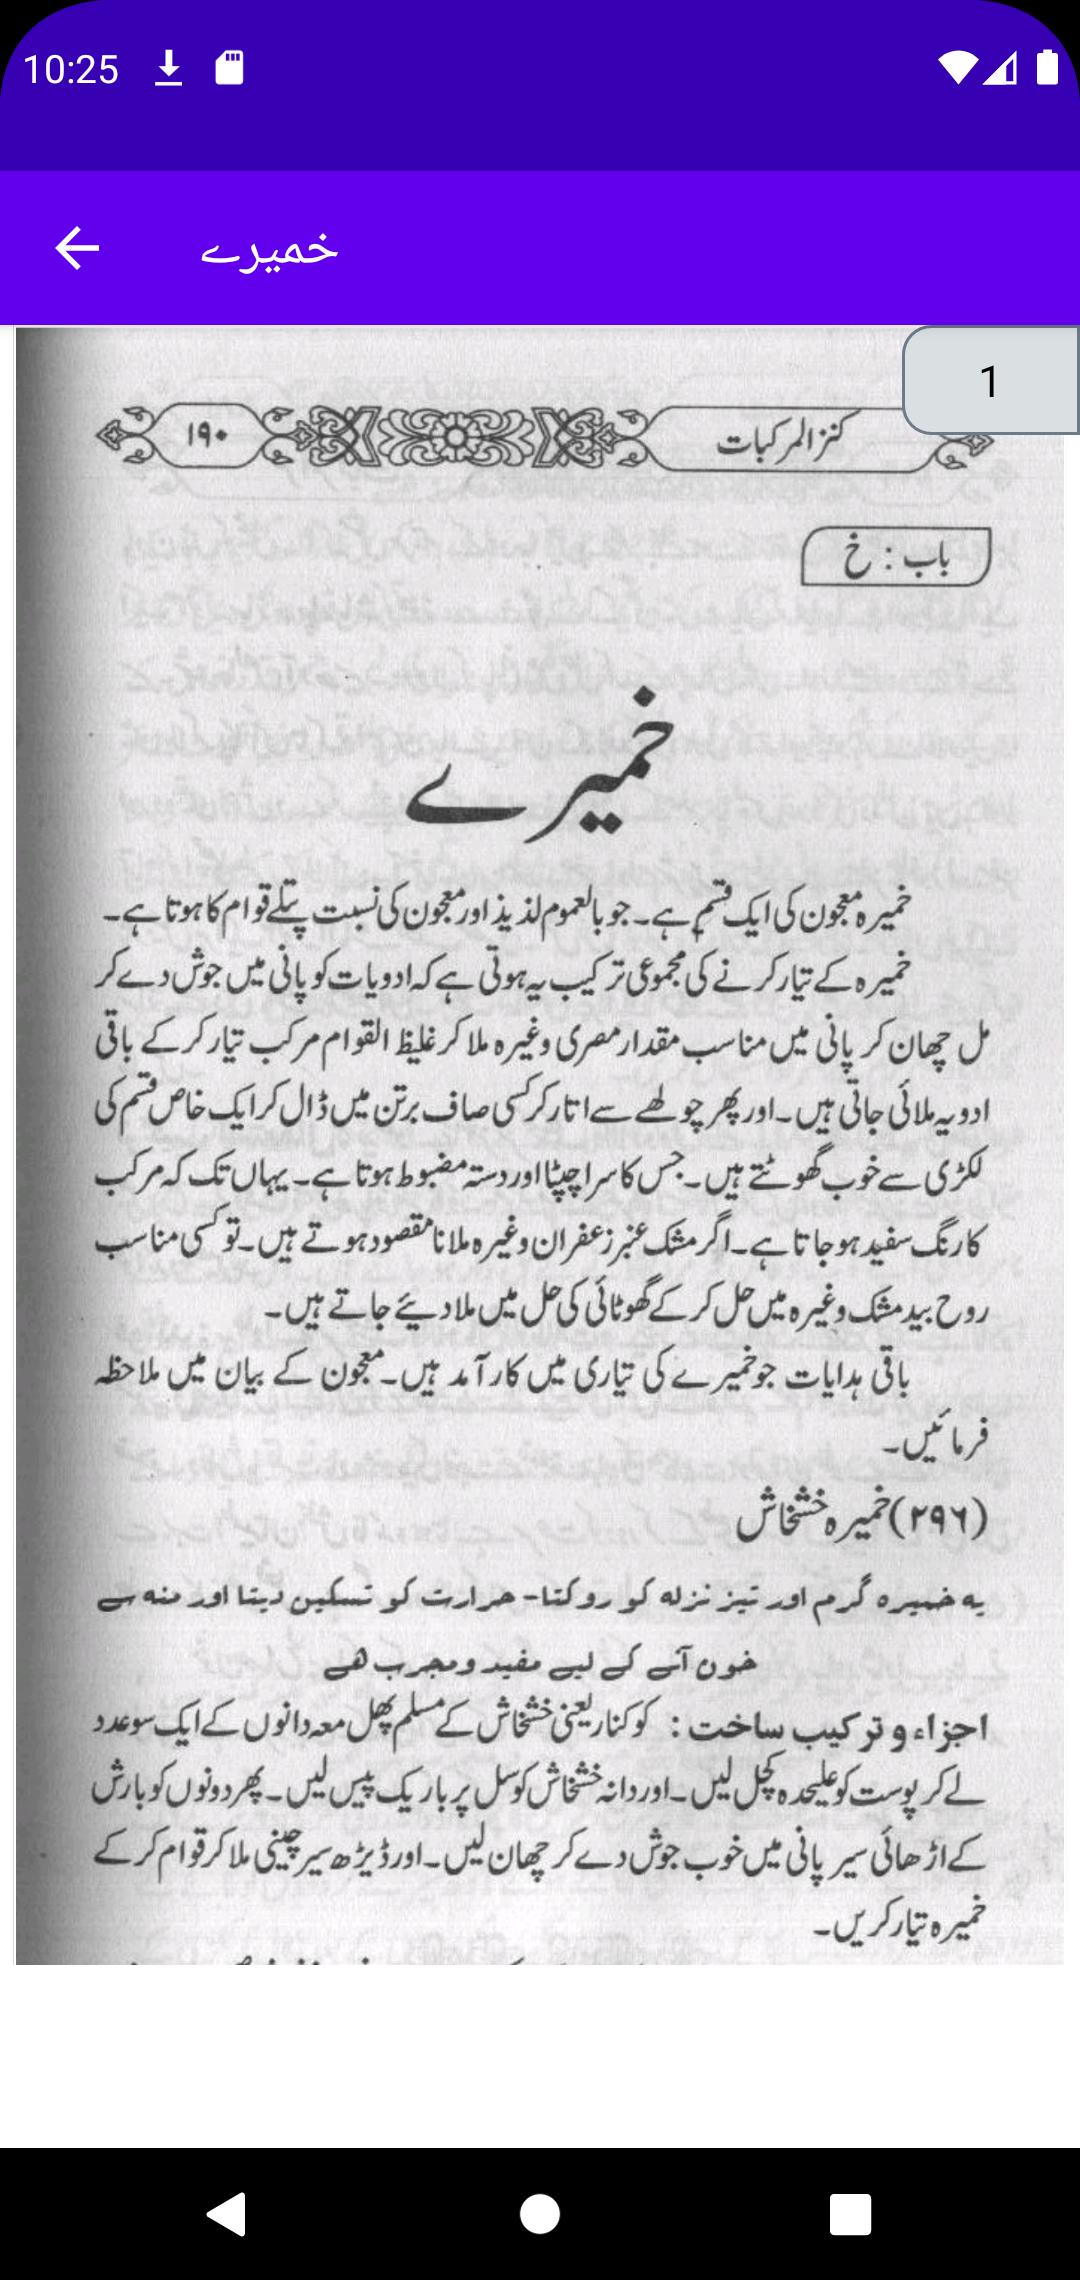 10:25
خمیرے
1
کنز المرکبات
۱۹۰
باب : خ
خمیرے
خمیرہ معجون کی ایک قسم ہے۔ جو بالعموم لذیذ اور معجون کی نسبت پتلے قوام کا ہوتا ہے۔
خمیرہ کے تیار کرنے کی مجموعی ترکیب یہ ہوتی ہے کہ ادویات کو پانی میں جوش دے کر
مل چھان کر پانی میں مناسب مقدار مصری وغیرہ ملا کر غلیظ القوام مرکب تیار کر کے باقی
ادویہ ملائی جاتی ہیں۔ اور پھر چولھے سے اتار کر کسی صاف برتن میں ڈال کر ایک خاص قسم کی
لکڑی سے خوب گھوٹتے ہیں۔ جس کا سرا چپٹا اور دستہ مضبوط ہوتا ہے۔ یہاں تک کہ مرکب
کا رنگ سفید ہو جاتا ہے۔ اگر مشک عنبر زعفران وغیرہ ملانا مقصود ہوتے ہیں۔ تو کسی مناسب
روح بید مشک وغیرہ میں حل کر کے گھوٹائی کی حل میں ملا دیئے جاتے ہیں۔
باقی ہدایات جو خمیرے کی تیاری میں کارآمد ہیں۔ معجون کے بیان میں ملاحظہ
فرمائیں۔
(۲۹۶) خمیرہ خشخاش
یہ خمیرہ گرم اور تیز نزلہ کو روکتا- حرارت کو تسکین دیتا اور منہ سے
خون آنے کے لیے مفید و مجرب ھے
اجزاء و ترکیب ساخت : کوکنار یعنی خشخاش کے مسلم پھل معہ دانوں کے ایک سو عدد
لے کر پوست کو علیحدہ کچل لیں۔ اور دانہ خشخاش کو سل پر باریک پیس لیں۔ پھر دونوں کو بارش
کے اڑھائی سیر پانی میں خوب جوش دے کر چھان لیں۔ اور ڈیڑھ سیر چینی ملا کر قوام کر کے
خمیرہ تیار کریں۔